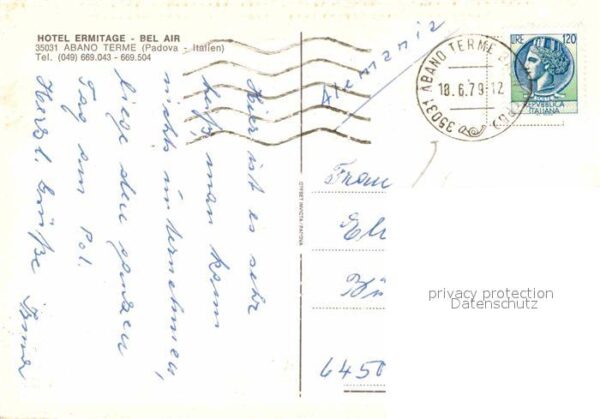 HOTEL ERMITAGE - BEL AIR
35031 ABANO TERME (Padova - Italien)
Tel. (049) 669.043 - 669.504
Hier ist es sehr
heiß, man kann
nichts unternehmen,
liege den ganzen
Tag am Pol.
Herzl. Grüße
35031 ABANO TERME
18.6.79-12
LIRE 120
REPVBBLICA
ITALIANA
Frau
6450
privacy protection
Datenschutz